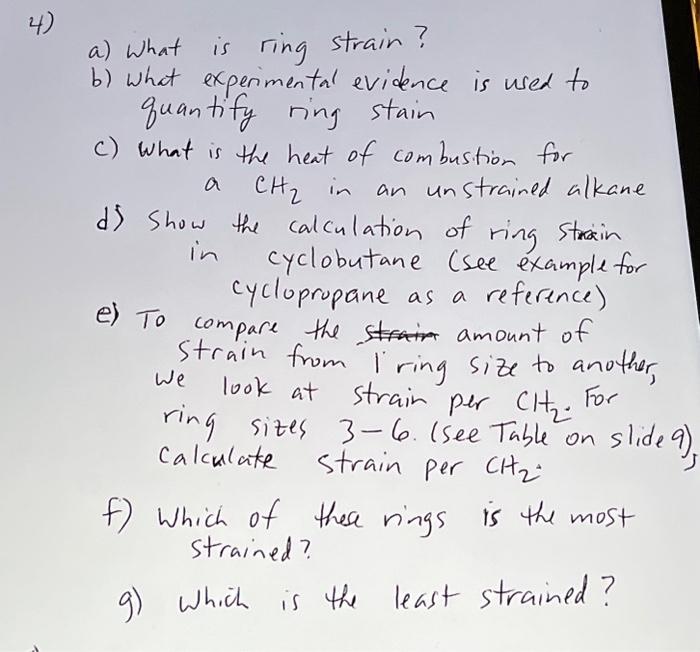 4)
a) What is ring strain?
b) What experimental evidence is used to
quantify ring stain
c) What is the heat of combustion for
a CH₂ in an unstrained alkane
d) Show the calculation of ring strain
in cyclobutane (see example for
cyclopropane as a reference)
e) To compare the strain amount of
strain from 1 ring size to another,
we look at strain per CH₂. For
ring sizes 3-6. (see Table on slide 9),
Calculate strain per CH₂.
f) Which of thea rings is the most
strained?
g) Which is the least strained?